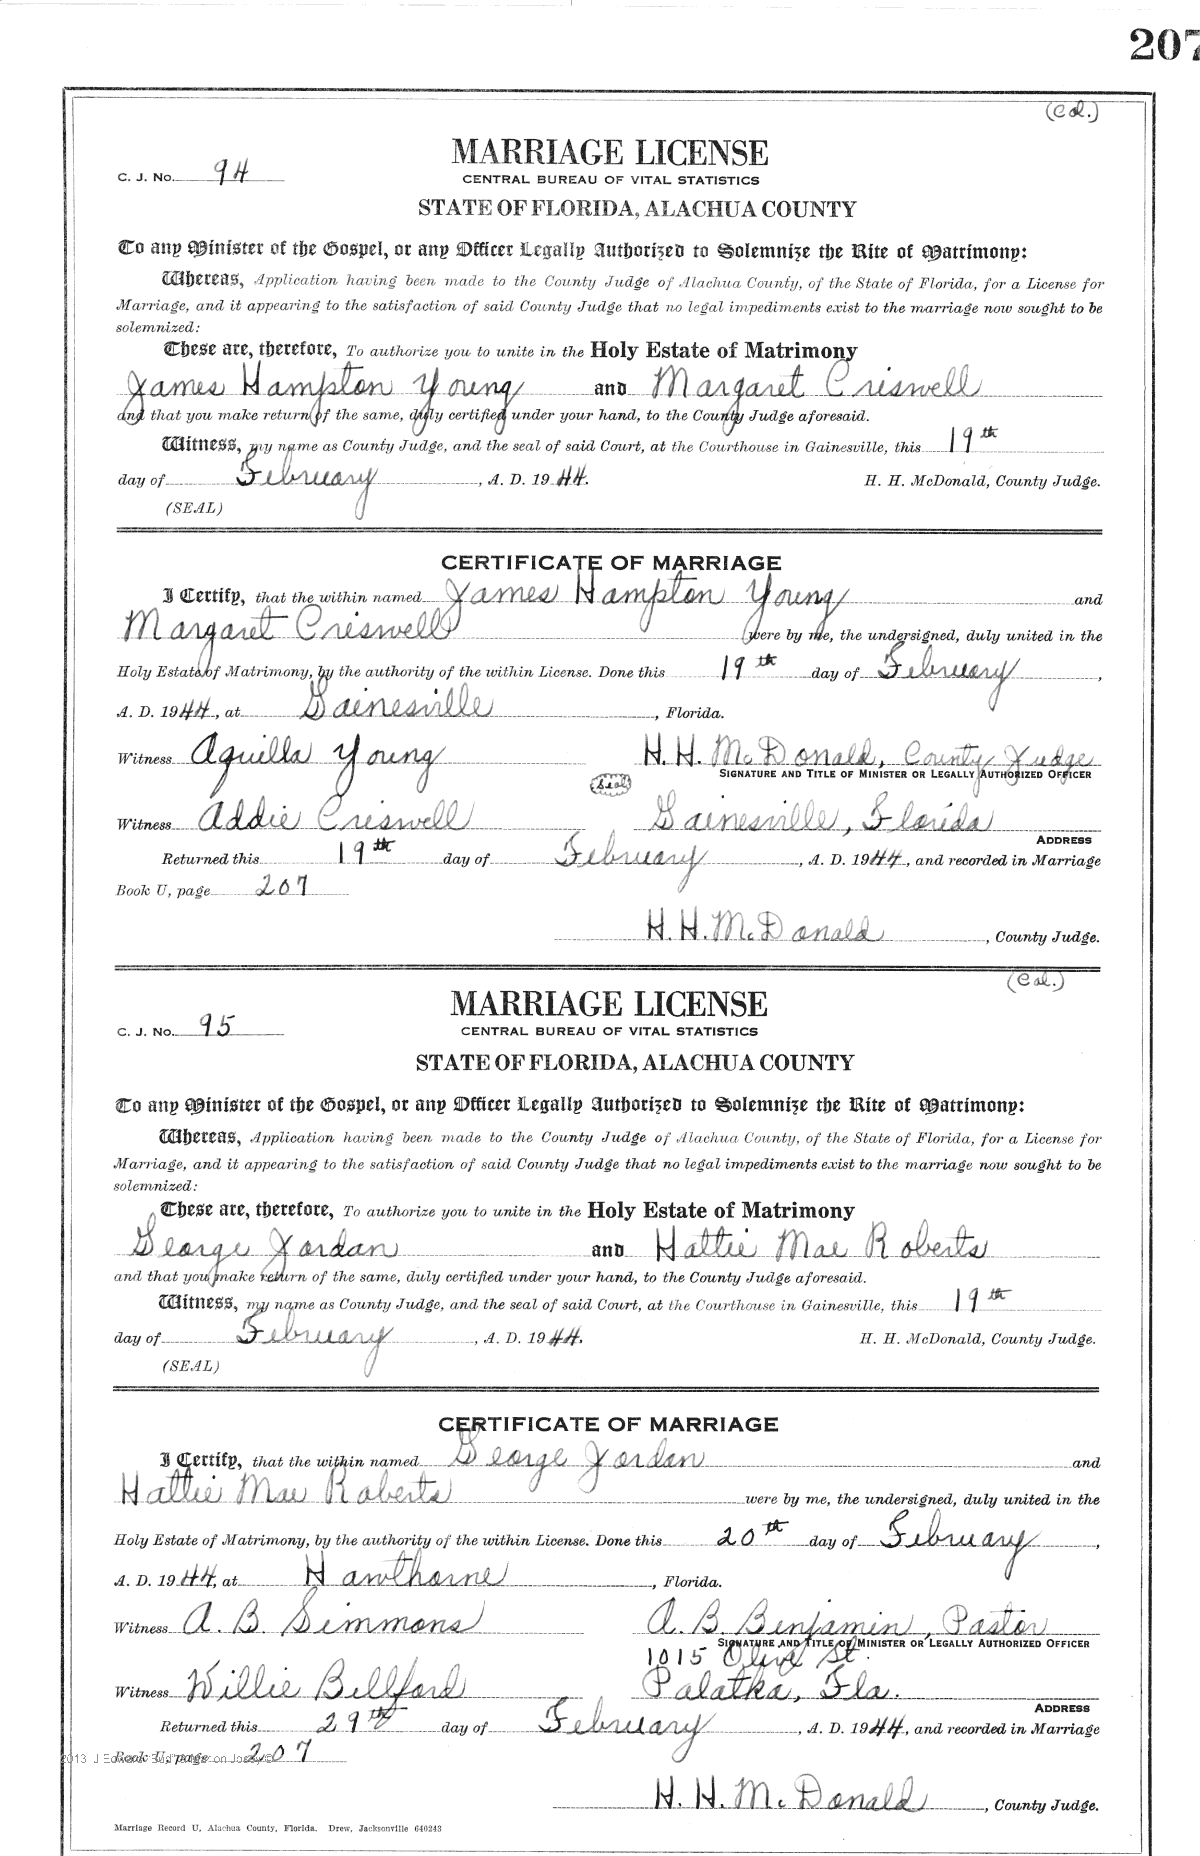 207
(Col.)
MARRIAGE LICENSE
C. J. No. 94
CENTRAL BUREAU OF VITAL STATISTICS
STATE OF FLORIDA, ALACHUA COUNTY
To any Minister of the Gospel, or any Officer Legally Authorized to Solemnize the Rite of Matrimony:
Whereas, Application having been made to the County Judge of Alachua County, of the State of Florida, for a License for
Marriage, and it appearing to the satisfaction of said County Judge that no legal impediments exist to the marriage now sought to be
solemnized:
These are, therefore, To authorize you to unite in the Holy Estate of Matrimony
James Hampton Young and Margaret Criswell
and that you make return of the same, duly certified under your hand, to the County Judge aforesaid.
Witness, my name as County Judge, and the seal of said Court, at the Courthouse in Gainesville, this 19th
day of February, A. D. 1944. H. H. McDonald, County Judge.
(SEAL)
CERTIFICATE OF MARRIAGE
I Certify, that the within named James Hampton Young and
Margaret Criswell were by me, the undersigned, duly united in the
Holy Estate of Matrimony, by the authority of the within License. Done this 19th day of February,
A. D. 1944, at Gainesville, Florida.
Witness Aquilla Young H. H. McDonald, County Judge
SIGNATURE AND TITLE OF MINISTER OR LEGALLY AUTHORIZED OFFICER
(Seal)
Witness Addie Criswell Gainesville, Florida
ADDRESS
Returned this 19th day of February, A. D. 1944, and recorded in Marriage
Book U, page 207
H. H. McDonald, County Judge.
(Col.)
MARRIAGE LICENSE
C. J. No. 95
CENTRAL BUREAU OF VITAL STATISTICS
STATE OF FLORIDA, ALACHUA COUNTY
To any Minister of the Gospel, or any Officer Legally Authorized to Solemnize the Rite of Matrimony:
Whereas, Application having been made to the County Judge of Alachua County, of the State of Florida, for a License for
Marriage, and it appearing to the satisfaction of said County Judge that no legal impediments exist to the marriage now sought to be
solemnized:
These are, therefore, To authorize you to unite in the Holy Estate of Matrimony
George Jordan and Hattie Mae Roberts
and that you make return of the same, duly certified under your hand, to the County Judge aforesaid.
Witness, my name as County Judge, and the seal of said Court, at the Courthouse in Gainesville, this 19th
day of February, A. D. 1944. H. H. McDonald, County Judge.
(SEAL)
CERTIFICATE OF MARRIAGE
I Certify, that the within named George Jordan and
Hattie Mae Roberts were by me, the undersigned, duly united in the
Holy Estate of Matrimony, by the authority of the within License. Done this 20th day of February,
A. D. 1944, at Hawthorne, Florida.
Witness A. B. Simmons A. B. Benjamin, Pastor
SIGNATURE AND TITLE OF MINISTER OR LEGALLY AUTHORIZED OFFICER
1015 Olive St.
Witness Willie Bellford Palatka, Fla.
ADDRESS
Returned this 29th day of February, A. D. 1944, and recorded in Marriage
Book U, page 207
2013 J Edward
H. H. McDonald, County Judge.
Marriage Record U, Alachua County, Florida. Drew, Jacksonville 640243